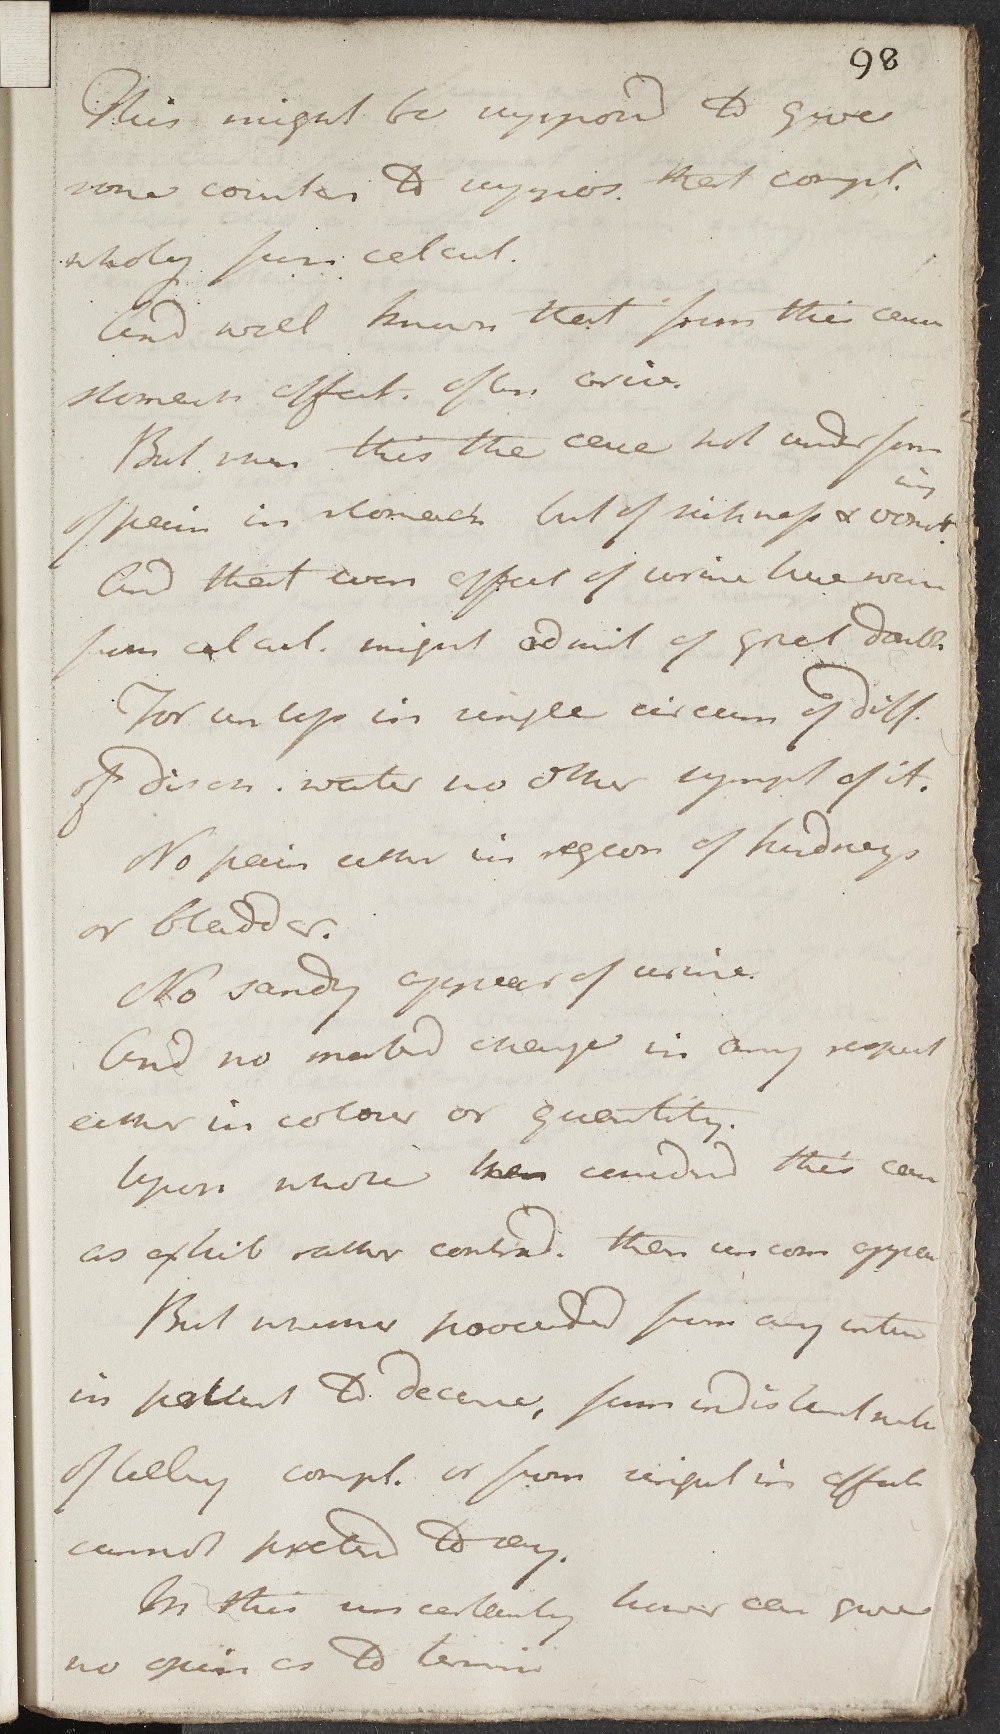 98
This might be suppose'd to give
some counten to suppos. that compl.
wholy from calcul.
And well known that from this caus
stomach affect. often arise.
But was this the case not under from
of pain in stomach but of sickness & vomit
ing
And that even affect of urine here was
from calcul. might admit of great doubt
For unless in single circum of diff.
of disch. water no other sympt of it.
No pain either in region of kidneys
or bladder.
No sandy appear of urine.
And no marked change in any respect
either in colour or quantity.
Upon whole then considerd this case
as exhib rather contrad. than uncom appea
But whether proceeded from any inten
in patient to deceive, from indistinct mode
of telling compl. or from singul in affect
cannot pretend to say.
In this uncertainty however can give
no opin as to termin